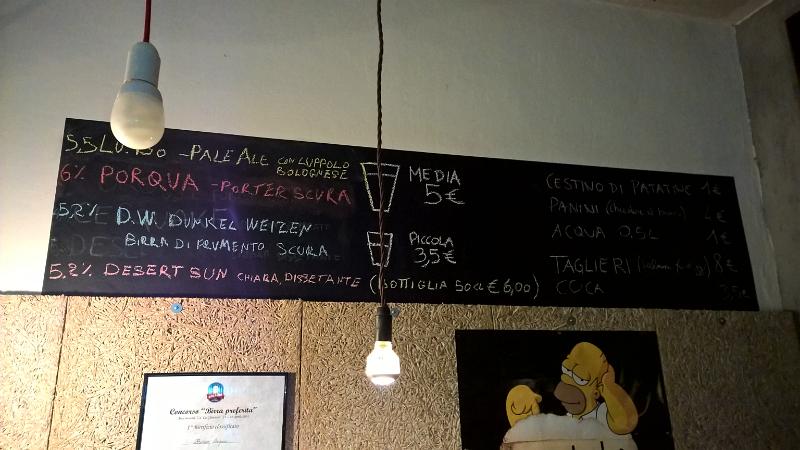 5,5 - PALE ALE CON LUPPOLO
BOLOGNESE
6% PORQUA - PORTER SCURA
5,2% D.W. DUNKEL WEIZEN
BIRRA DI FRUMENTO SCURA
5,2% DESERT SUN CHIARA, DISSETANTE (BOTTIGLIA 50 cl € 6,00)
MEDIA
5€
PICCOLA
3,5€
CESTINO DI PATATINE 1€
PANINI 4€
ACQUA 0,5L 1€
TAGLIERI 8€
COCA
Concorso "Birra preferita"
1° Birrificio classificato